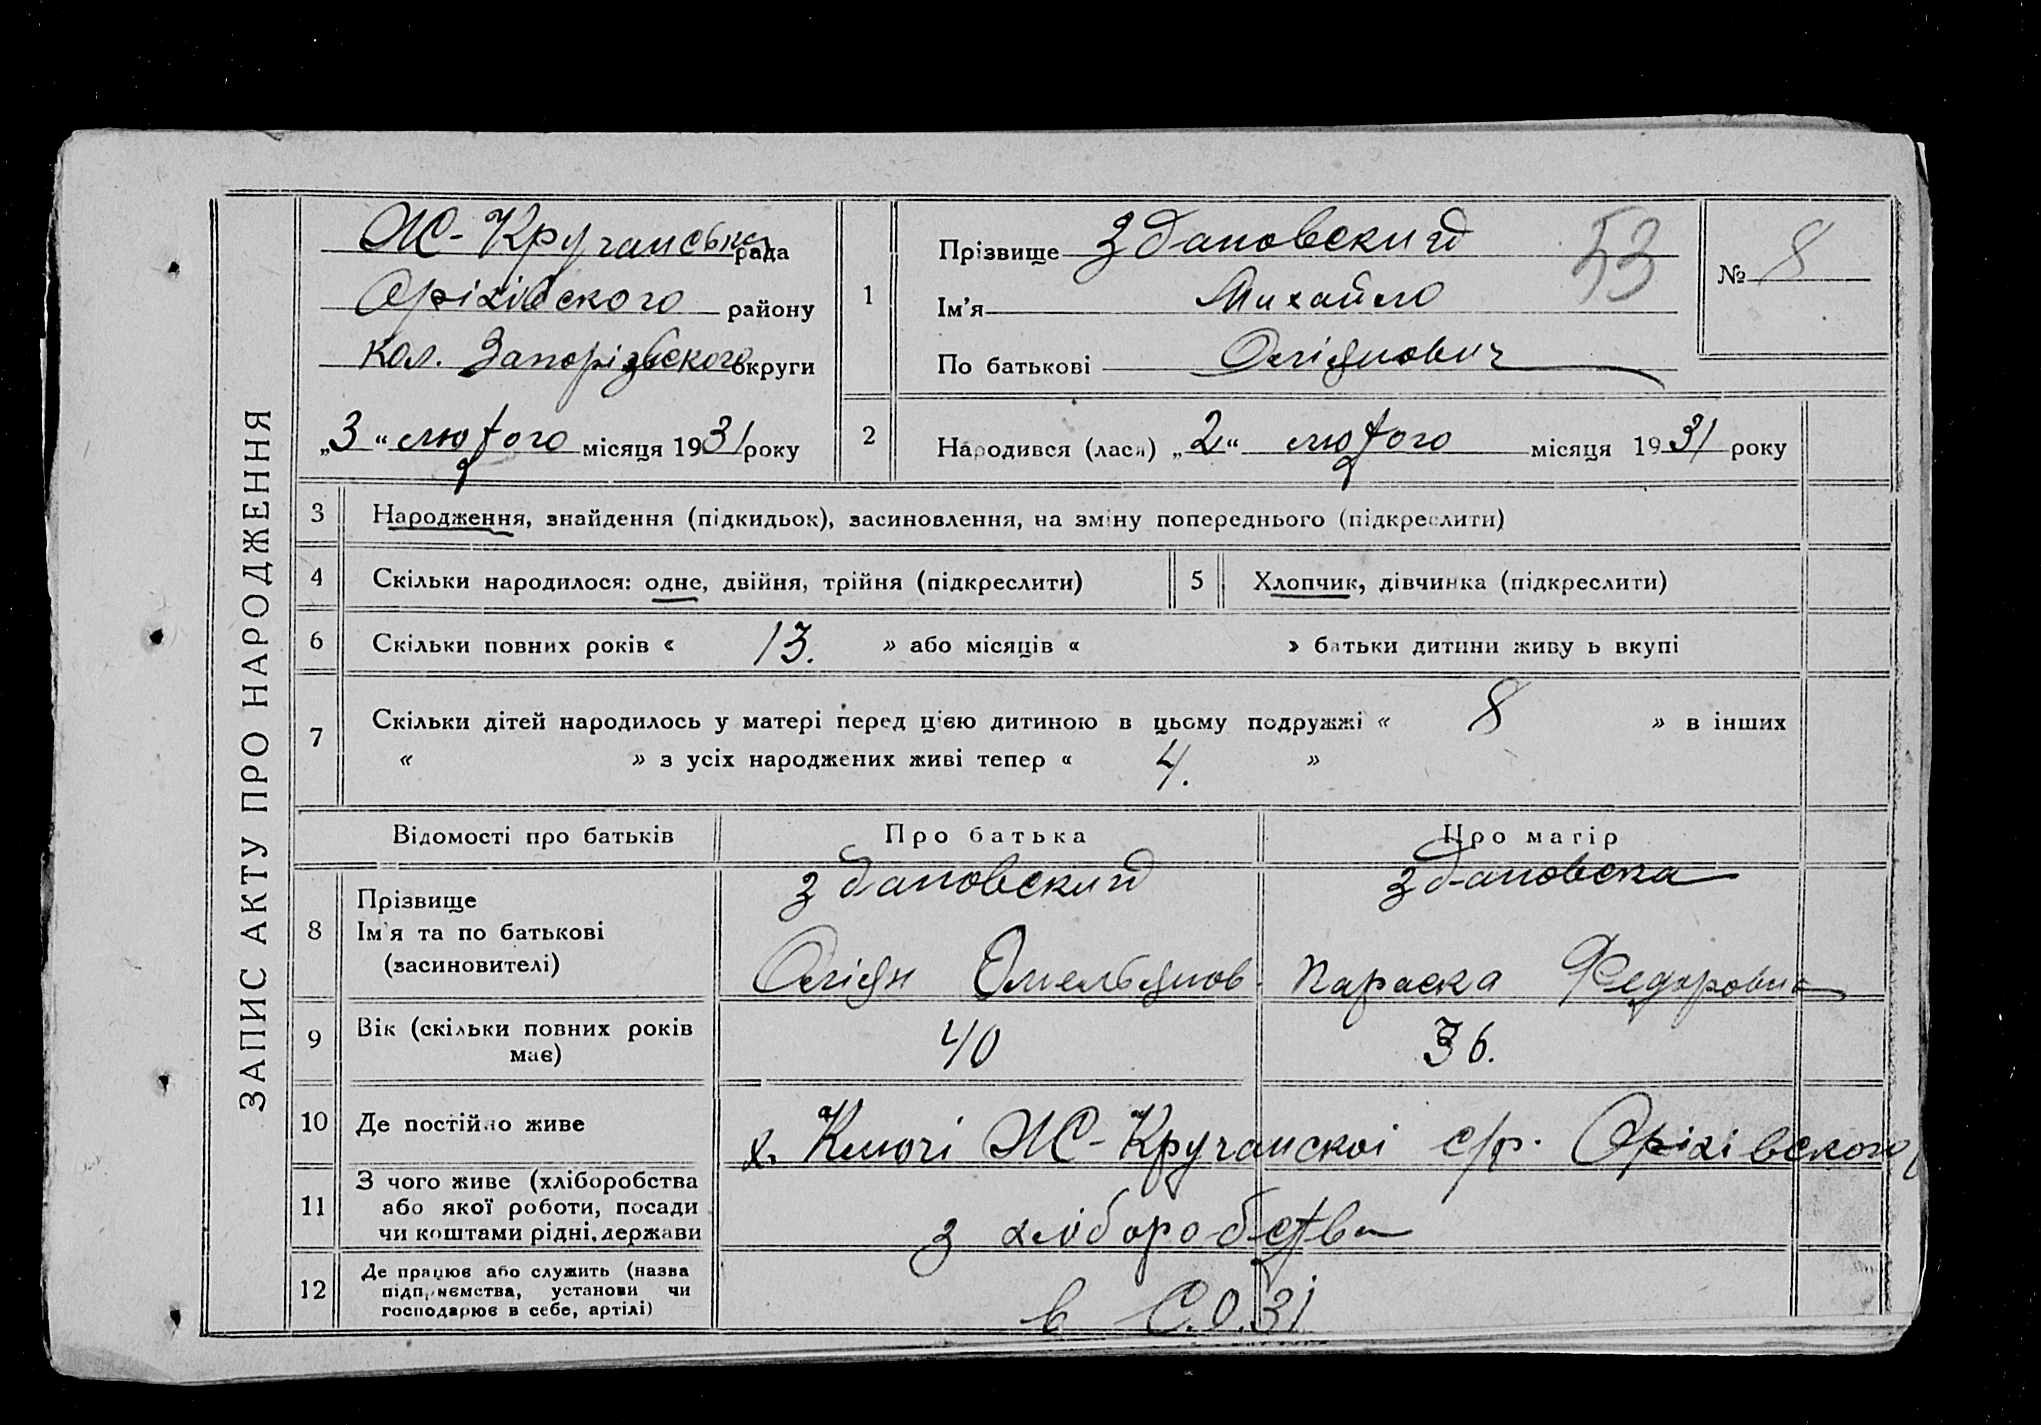 ЗАПИС АКТУ ПРО НАРОДЖЕННЯ
Ж-Кручанська рада
Оріхівского району
Кол. Запорізвского округи
„3“ лютого місяця 1931 року
1
Прізвище Здановский
Ім'я Михайло
По батькові Оліянович
53
№ 8
2
Народився (лася) „2“ лютого місяця 1931 року
3 Народження, знайдення (підкидьок), засиновлення, на зміну попереднього (підкреслити)
4 Скільки народилося: одне, двійня, трійня (підкреслити)
5 Хлопчик, дівчинка (підкреслити)
6 Скільки повних років « 13. » або місяців « » батьки дитини живу ь вкупі
7 Скільки дітей народилось у матері перед цією дитиною в цьому подружжі « 8 » в інших
« » з усіх народжених живі тепер « 4. »
Відомості про батьків Про батька Про матір
8 Прізвище Здановский Здановска
Ім'я та по батькові
(засиновителі) Оліян Омельянов. Параска Федоровна
9 Вік (скільки повних років має) 40 36.
10 Де постійно живе х. Ключі Ж-Кручанскоі с/р. Оріхівского
11 З чого живе (хліборобства
або якої роботи, посади
чи коштами рідні, держави з хліборобства
12 Де працює або служить (назва
підприємства, установи чи
господарює в себе, артілі) в С.О.Зі